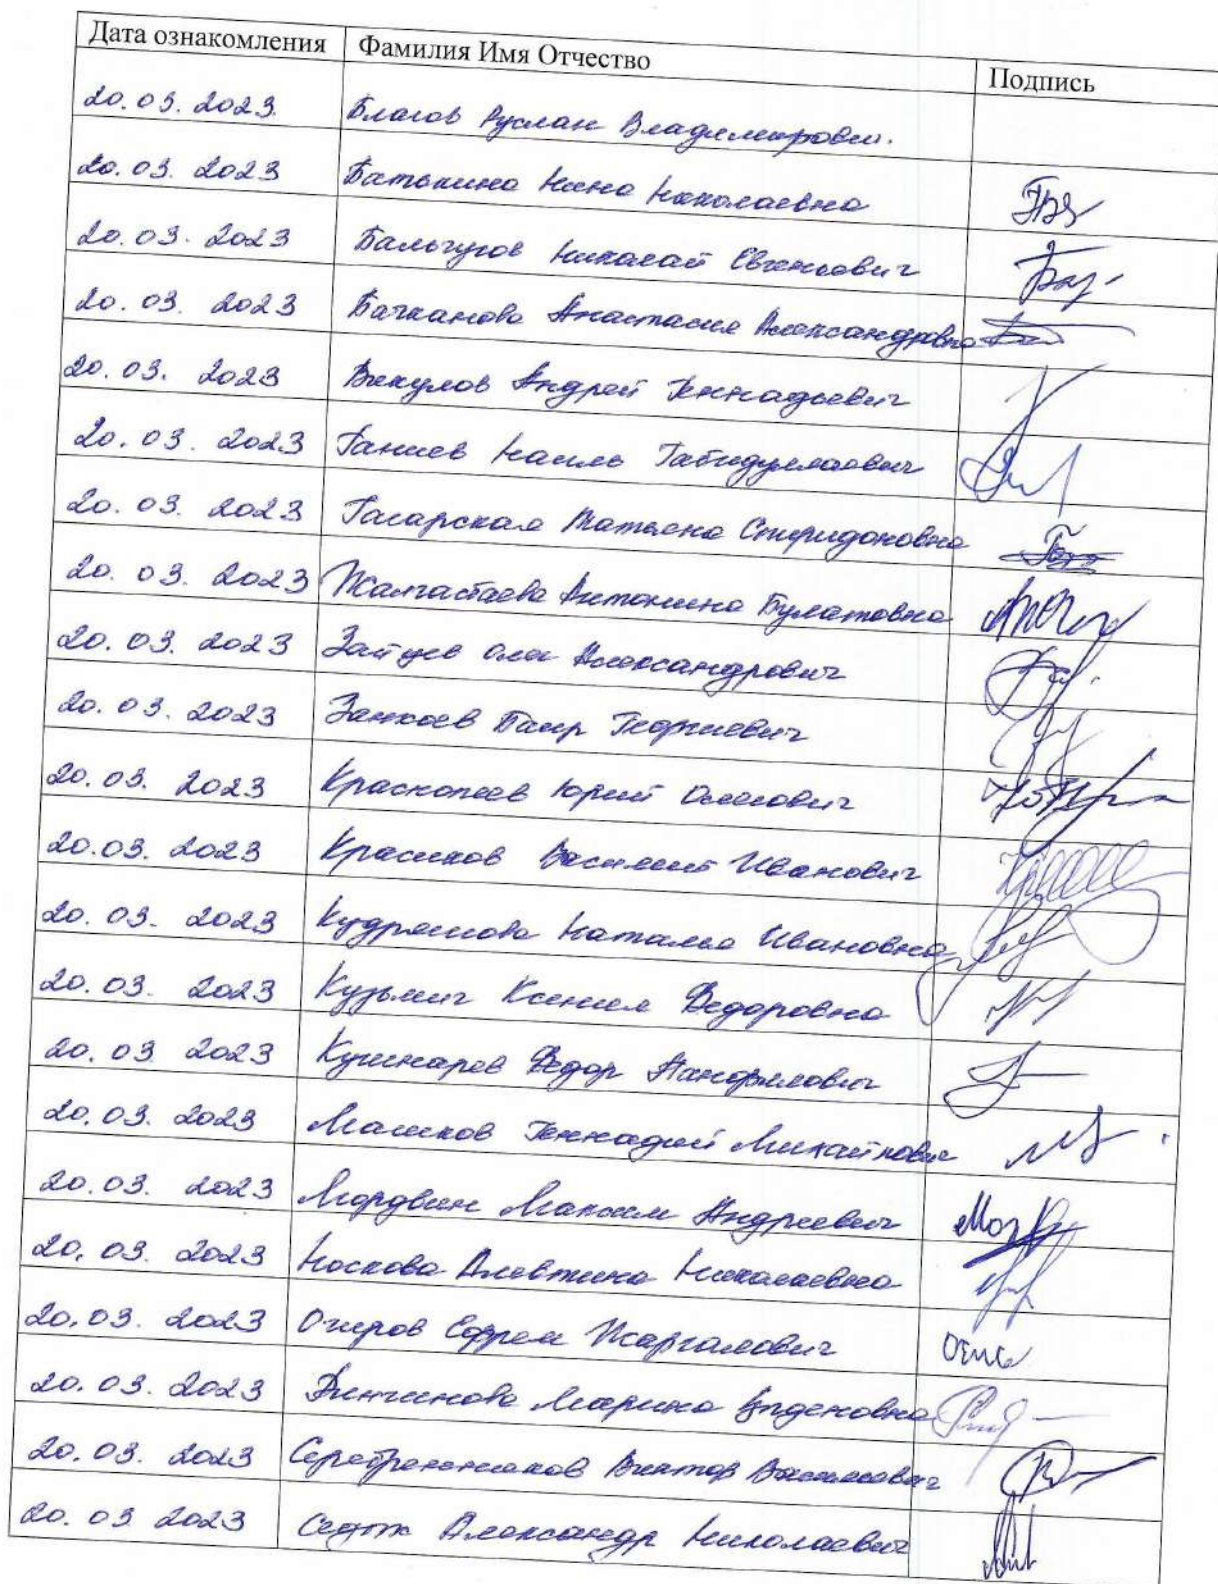 Дата ознакомления Фамилия Имя Отчество Подпись
20.03.2023 Благов Руслан Владимирович.
20.03.2023 Батькина Нина Николаевна
20.03.2023 Бальчугов Николай Евгеньевич
20.03.2023 Бачканова Анастасия Александровна
20.03.2023 Викулов Андрей Геннадьевич
20.03.2023 Ганиев Наиль Габидуллаович
20.03.2023 Гагарская Татьяна Спиридоновна
20.03.2023 Жалгастаева Антонина Булатовна
20.03.2023 Зайцев Олег Александрович
20.03.2023 Занкоев Баир Георгиевич
20.03.2023 Краскопеев Юрий Олегович
20.03.2023 Красиков Василий Иванович
20.03.2023 Кудряшова Наталья Ивановна
20.03.2023 Кузьмич Ксения Федоровна
20.03.2023 Кушнарев Федор Панфилович
20.03.2023 Машков Геннадий Михайлович
20.03.2023 Мордвин Максим Андреевич
20.03.2023 Носкова Алевтина Николаевна
20.03.2023 Очиров Ефрем Жаргалович
20.03.2023 Ринчинова Марина Цыденовна
20.03.2023 Серебренников Виктор Васильевич
20.03.2023 Александр Николаевич